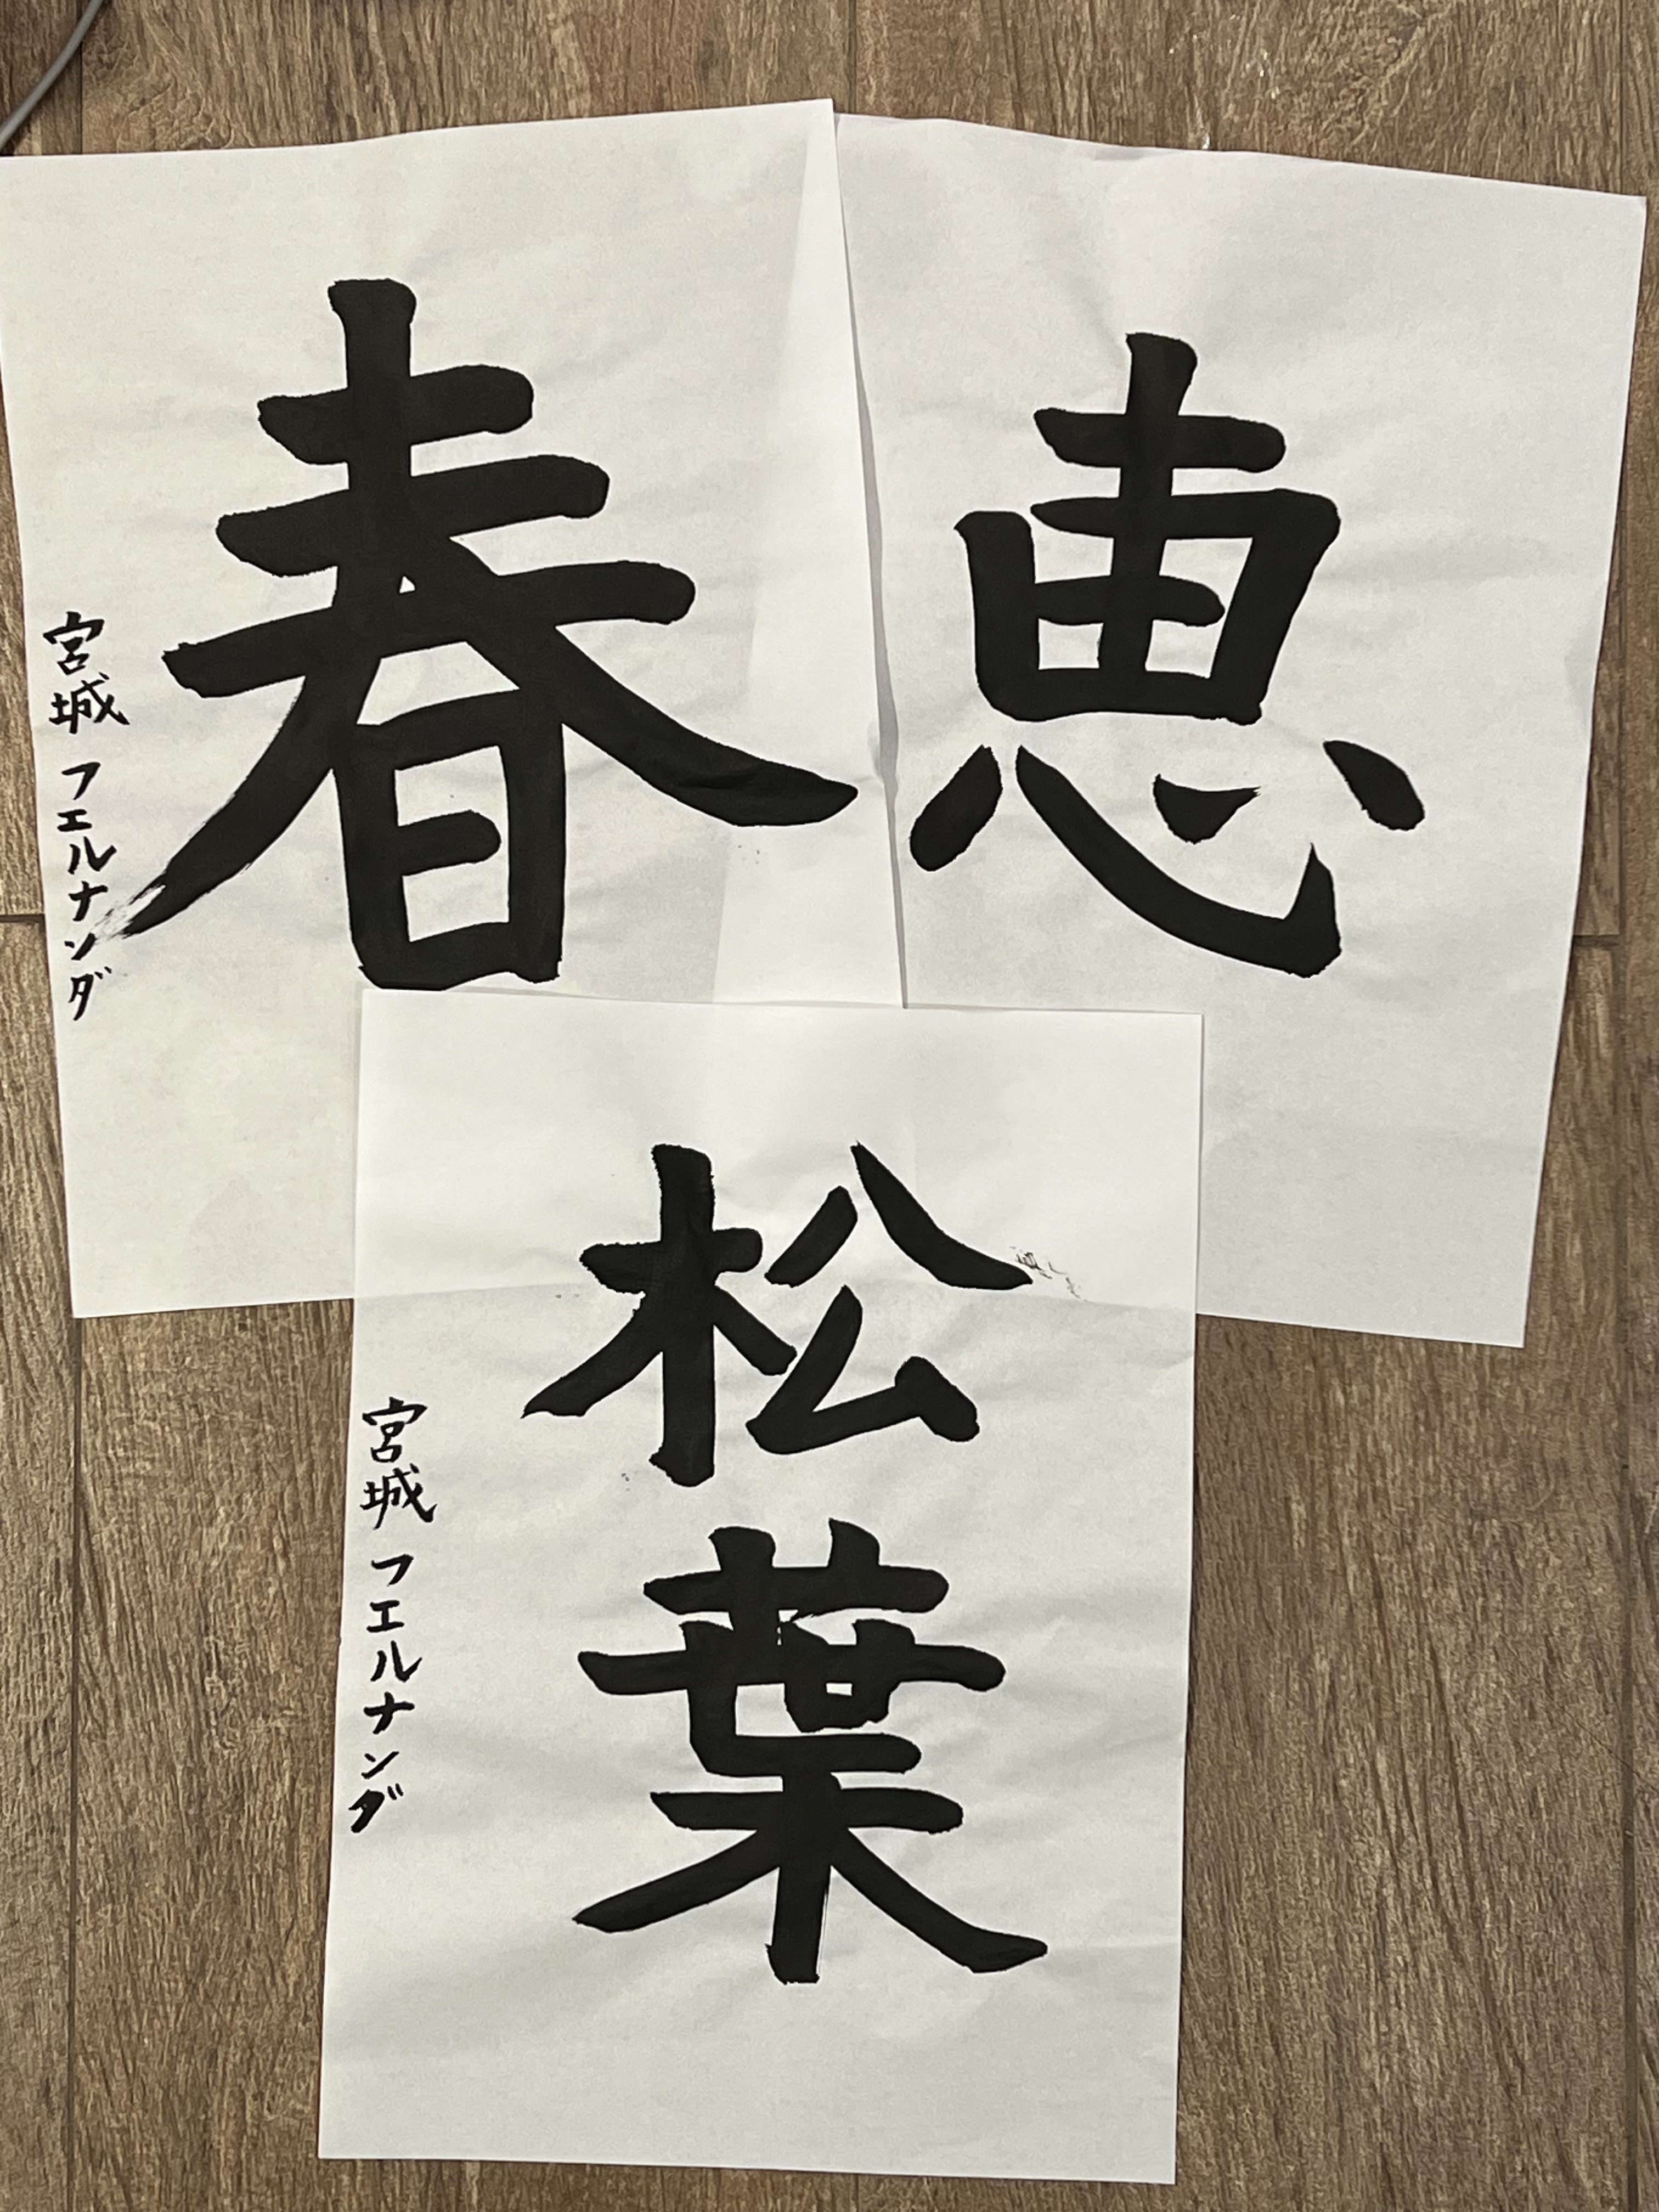 春
宮城 フェルナンダ
恵
松葉
宮城 フェルナンダ